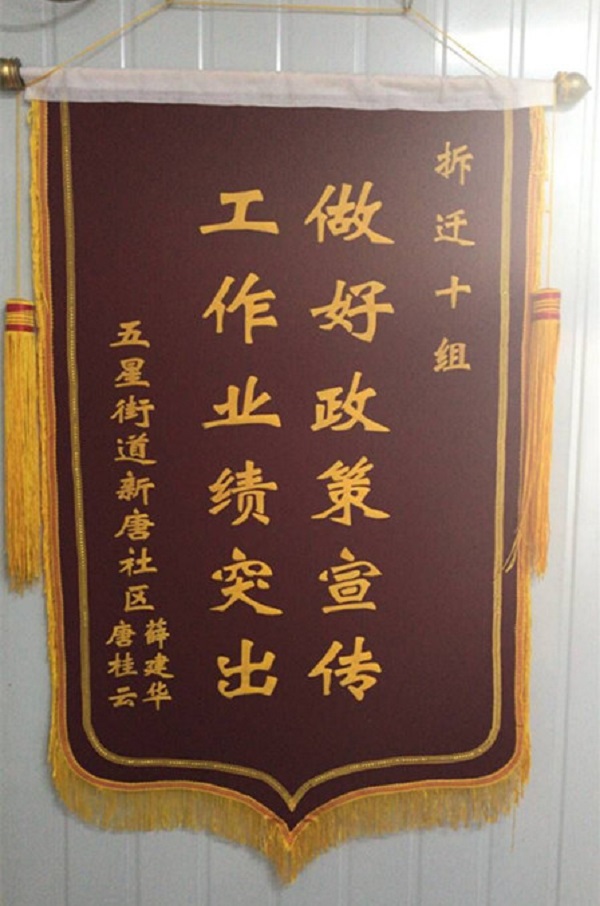 拆迁十组
做好政策宣传
工作业绩突出
五星街道新唐社区
薛建华
唐桂云